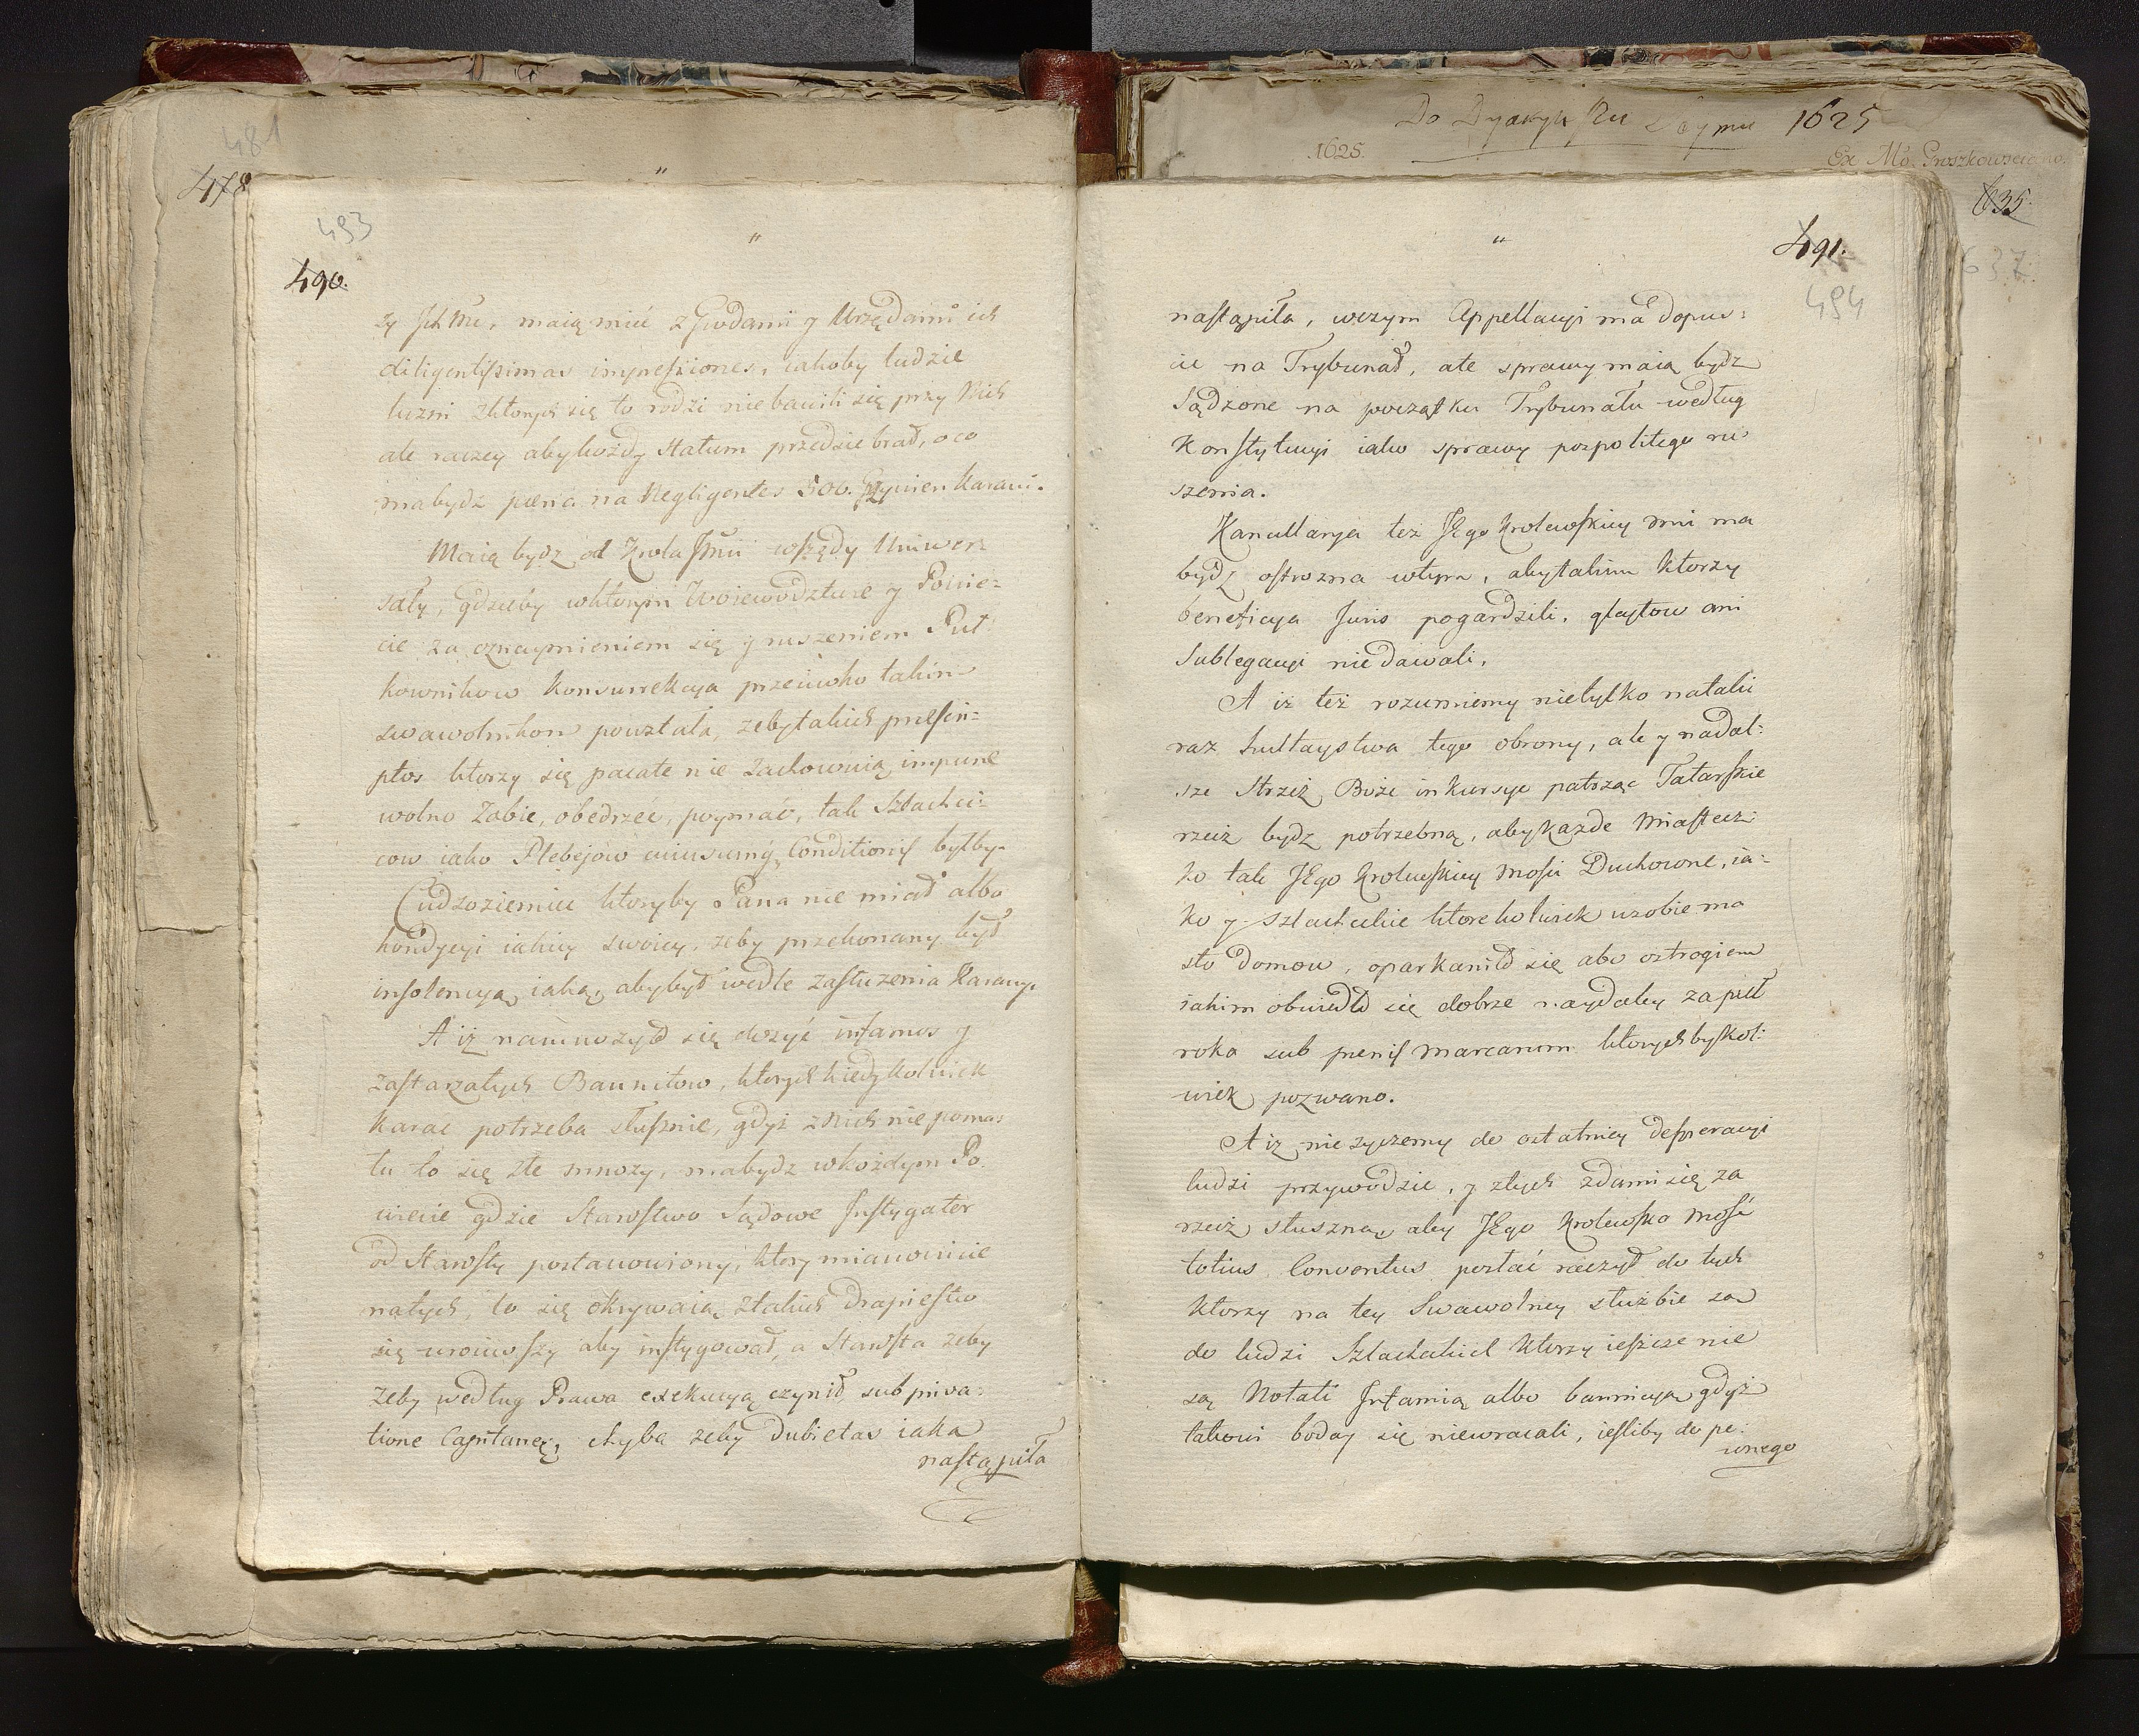 481
478
"
493
490.
zy Jch Mć, maią mieć z Grodami y Urzędami ich
diligentissimas impressiones, iakoby ludzie
luzni zktorych się to rodzi nie bawili się przy Nich
ale raczey aby każdy statum przedsie brał, o co
ma bydz pæna na Negligentes 500. Grzywien karani.
Maią bydz od Krola Jmći wszędy Uniwer:
sały, gdzieby wktorym Woiewodztwie y Powie:
cie za oznaymieniem się y ruszeniem Puł
kownikow konsurrekcya przeciwko takim
swawolnikom powstała, zeby takich
ktorzy się pacate nie zachowuią impune
wolno Zabic, obedrzeć, poymać, tak Szlachci:
cow iako Plebejow cuiuscumq Conditionis byłby.
Cudzoziemiec ktoryby Pana nie miał albo
kondycyi iakiey swoiey, zeby przekonany był
insolencyą iaką, aby był wedle zasłuzenia Karany.
A iz namnozyło się dosyć infamis y
zastarzałych Bannitow, ktorych kiedykolwiek
karac potrzeba słusznie, gdyż z nich nie poma:
łu to się złe mnozy, ma bydz w każdym Po.
wiecie gdzie Starostwo Sądowe Instygator
od Starosty postanowiony, ktory mianowicie
natych, co się okrywaią ztakich drapiestw
się wrociwszy aby instygował, a Starosta zeby
zeby według Prawa exekucyą czynił sub priva:
tione Capitaneę, chyba zeby dubietas iaka
nastąpiła
Do Dyaryuszu Seymu 1625
1625.
Ex Mo. Groszkowsciano.
635.
637.
"
491.
494
nastąpiła, wczym Appellacyi ma dopus:
cic na Trybunał, ale sprawy maią bydz
Sądzone na początku Trybunału według
Konstytucyi iako sprawy pospolitego ru
szenia.
Kancellarya też JEgo Krolewskiey Mći ma
bydz ostrozna wtym, aby takim ktorzy
beneficya Juris pogardzili, gleytow ani
Sublegacyi nie dawali.
A iż też rozumiemy nietylko natakie
raz hultaystwa tego obrony, ale y nadal:
sze Strzeż Boże inkursye patrząc Tatarskie
rzecz bydz potrzebną, aby kazde Miastecz:
ko tak JEgo Krolewskiey Mosci Duchowne, ia:
ko y Szlacheckie ktorekolwiek wsobie ma
sto Domow, oparkaniło się abo ostrogiem
iakim obwiodło się dobrze naydaley zapuł
roka sub penis marcarum ktorychbykol:
wiek pozwano.
A iz nie zyczemy do ostatniey desperacyi
ludzi przywodzic, y złych zda mi się za
rzecz słuszną aby JEgo Krolewska Mość
totius Conventus posłać raczył do tych
ktorzy na tey Swawolney służbie są
do ludzi Szlacheckich ktorzy ieszcze nie
są Notati Infamią albo bannicyą gdyż
takowi boday się niewracali, iesliby do pe:
wnego